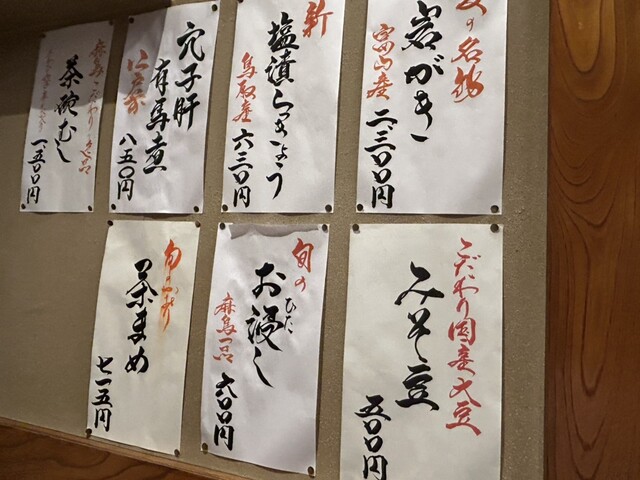 の名物
岩がき
富山産
二、三〇〇円
新
塩漬らっきょう
鳥取産
六三〇円
穴子肝
有馬煮
八五〇円
茶碗むし
一、五〇〇円
こだわり国産大豆
みそ豆
五〇〇円
旬の
お浸し
ひた
麻鳥一品
六〇〇円
茶まめ
七一五円